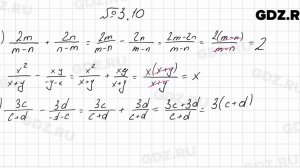 № 3.10
GDZ.R
) 2m/(m-n) + 2n/(n-m) = 2m/(m-n) - 2n/(m-n) = (2m-2n)/(m-n) = 2(m-n)/(m-n) = 2
x²/ - xy/(y-x) = x²/(x+y) + xy/(x+y) = x(x+y)/(x+y) = x
) 3c/(c+d) - 3d/ = 3c/(c+d) + 3d/(c+d) = (3c+3d)/(c+d) = 3(c+d)
GDZ.RU